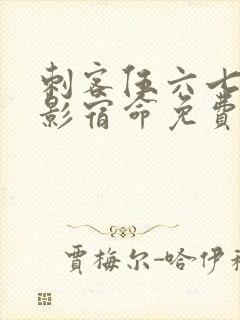 刺客伍六七
影宿命免费
贾梅尔-哈伊